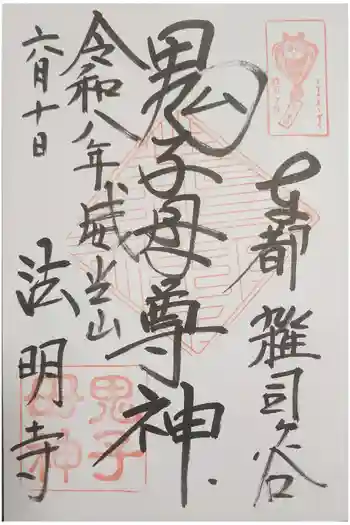 東都
雑司ヶ谷
鬼子母尊神
威光山
令和八年
六月十日
法明寺
鬼子
母神